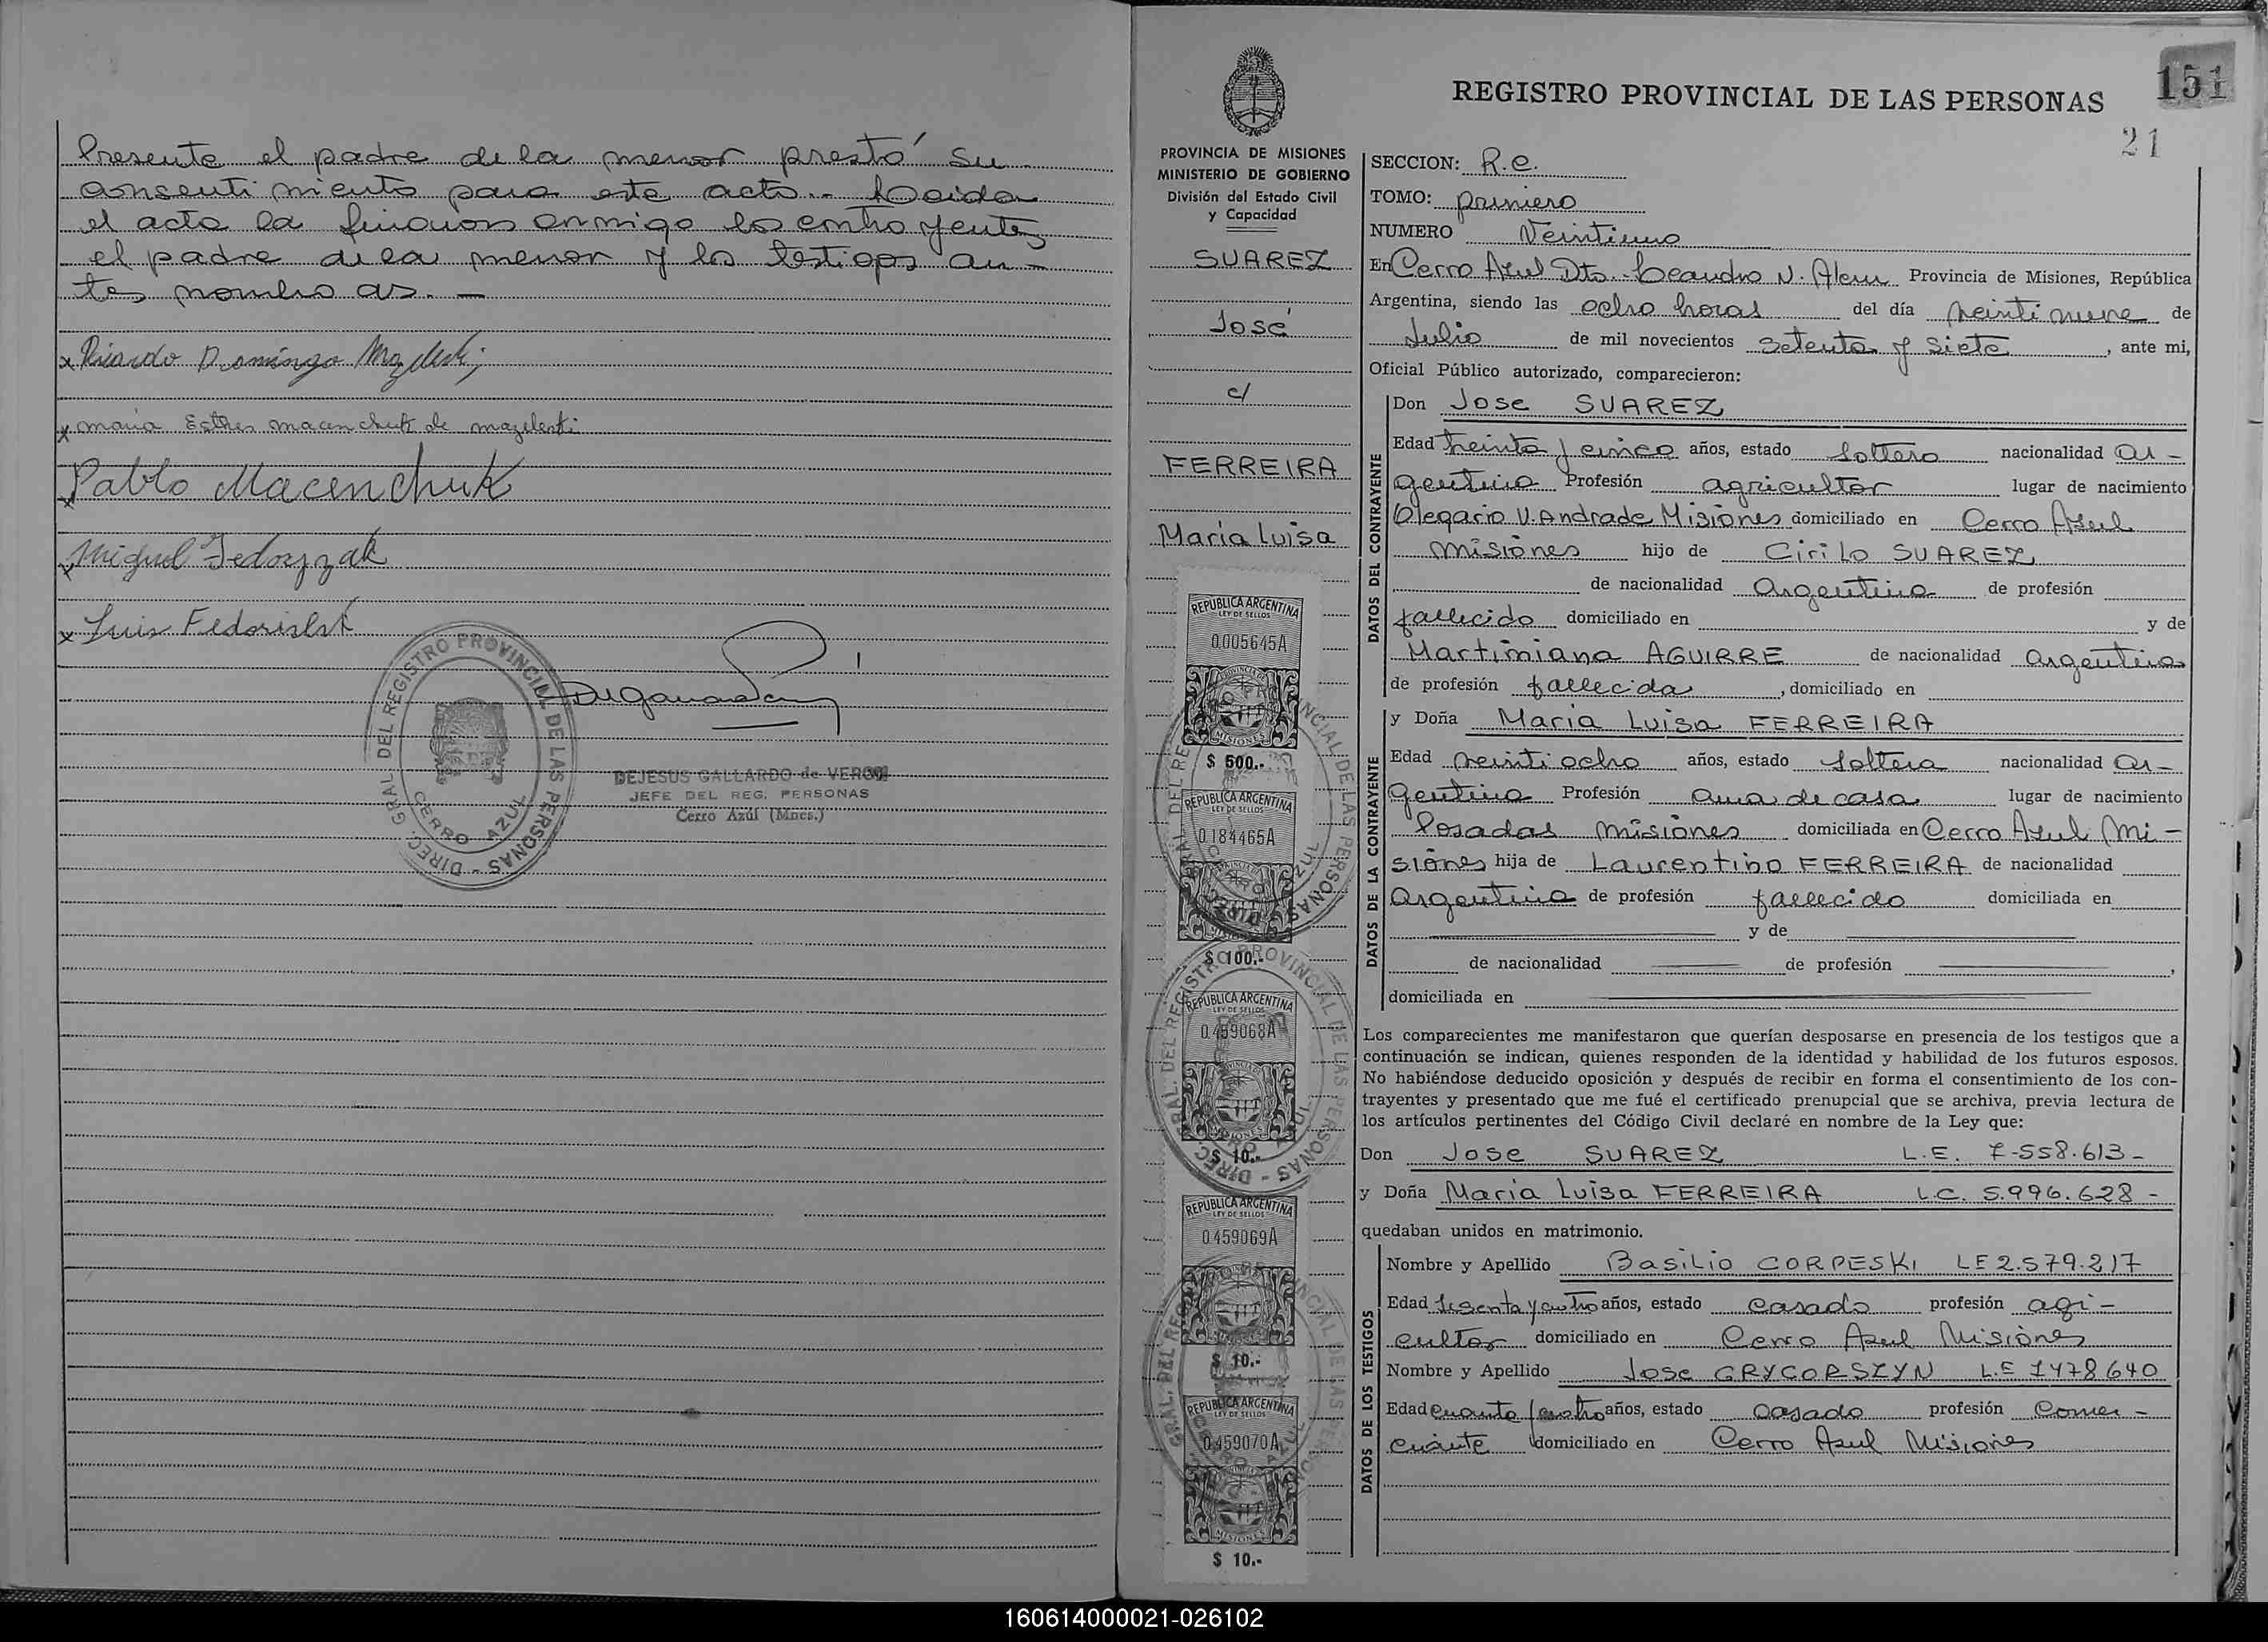 Presente el padre de la menor prestó su
consentimiento para este acto.. Leida
el acta la firmaron conmigo los contrayentes
el padre de la menor y los testigos an-
tes nombrados. -
x Ricardo Domingo
x maria Esther macenchuk de mazelenki
x Pablo Macenchuk
x Miguel Fedoryzak
x Luis Fedorislsk
DIREC. GRAL. DEL REGISTRO PROVINCIAL DE LAS PERSONAS -
CERRO AZUL
DEJESUS GALLARDO de VERON
JEFE DEL REG. PERSONAS
Cerro Azúl (Mnes.)
151
REGISTRO PROVINCIAL DE LAS PERSONAS
21
PROVINCIA DE MISIONES
MINISTERIO DE GOBIERNO
División del Estado Civil
y Capacidad
SUAREZ
José
c/
FERREIRA
Maria Luisa
REPUBLICA ARGENTINA
LEY DE SELLOS
0.005645A
MISIONES
$ 500.-
REPUBLICA ARGENTINA
LEY DE SELLOS
0.184465A
$ 100.-
REPUBLICA ARGENTINA
LEY DE SELLOS
0.459068A
$ 10.-
REPUBLICA ARGENTINA
LEY DE SELLOS
0.459069A
$ 10.-
REPUBLICA ARGENTINA
LEY DE SELLOS
0.459070A
MISIONES
$ 10.-
SECCION: R.C.
TOMO: primero
NUMERO Veintiuno
En Cerro Azul Dto. Leandro N. Alem Provincia de Misiones, República
Argentina, siendo las ocho horas del día veintinueve de
Julio de mil novecientos setenta y siete, ante mi,
Oficial Público autorizado, comparecieron:
DATOS DEL CONTRAYENTE
Don Jose SUAREZ
Edad treinta y cinco años, estado soltero nacionalidad ar-
gentino Profesión agricultor lugar de nacimiento
Olegario V. Andrade Misiones domiciliado en Cerro Azul
misiones hijo de Cirilo SUAREZ
de nacionalidad Argentino de profesión
fallecido domiciliado en y de
Martiniana AGUIRRE de nacionalidad argentina
de profesión fallecida, domiciliado en
DATOS DE LA CONTRAYENTE
y Doña Maria Luisa FERREIRA
Edad veintiocho años, estado soltera nacionalidad ar-
gentina Profesión ama de casa lugar de nacimiento
Posadas misiones domiciliada en Cerro Azul Mi-
siones hija de Laurentino FERREIRA de nacionalidad
argentino de profesión fallecido domiciliada en
y de
de nacionalidad de profesión ,
domiciliada en
Los comparecientes me manifestaron que querían desposarse en presencia de los testigos que a
continuación se indican, quienes responden de la identidad y habilidad de los futuros esposos.
No habiéndose deducido oposición y después de recibir en forma el consentimiento de los con-
trayentes y presentado que me fué el certificado prenupcial que se archiva, previa lectura de
los artículos pertinentes del Código Civil declaré en nombre de la Ley que:
Don Jose SUAREZ L.E. 7-558.613-
y Doña Maria Luisa FERREIRA L.C. 5.996.628 -
quedaban unidos en matrimonio.
DATOS DE LOS TESTIGOS
Nombre y Apellido Basilio CORPESKI LE 2.579.217
Edad sesenta y cuatro años, estado casado profesión agri-
cultor domiciliado en Cerro Azul Misiones
Nombre y Apellido Jose GRYCORSZYN L.E 1478640
Edad cuarenta y cuatro años, estado casado profesión Comer-
ciante domiciliado en Cerro Azul Misiones
160614000021-026102